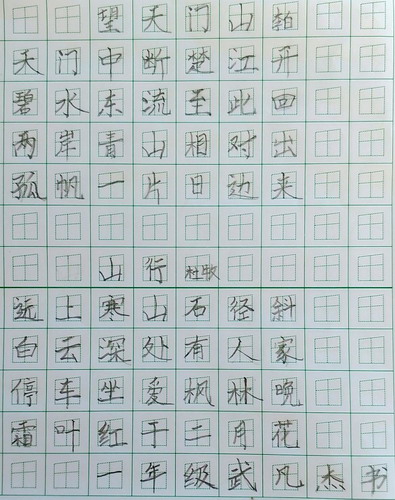 望天门山 李白
天门中断楚江开
碧水东流至此回
两岸青山相对出
孤帆一片日边来
山行 杜牧
远上寒山石径斜
白云深处有人家
停车坐爱枫林晚
霜叶红于二月花
一年级武凡杰书